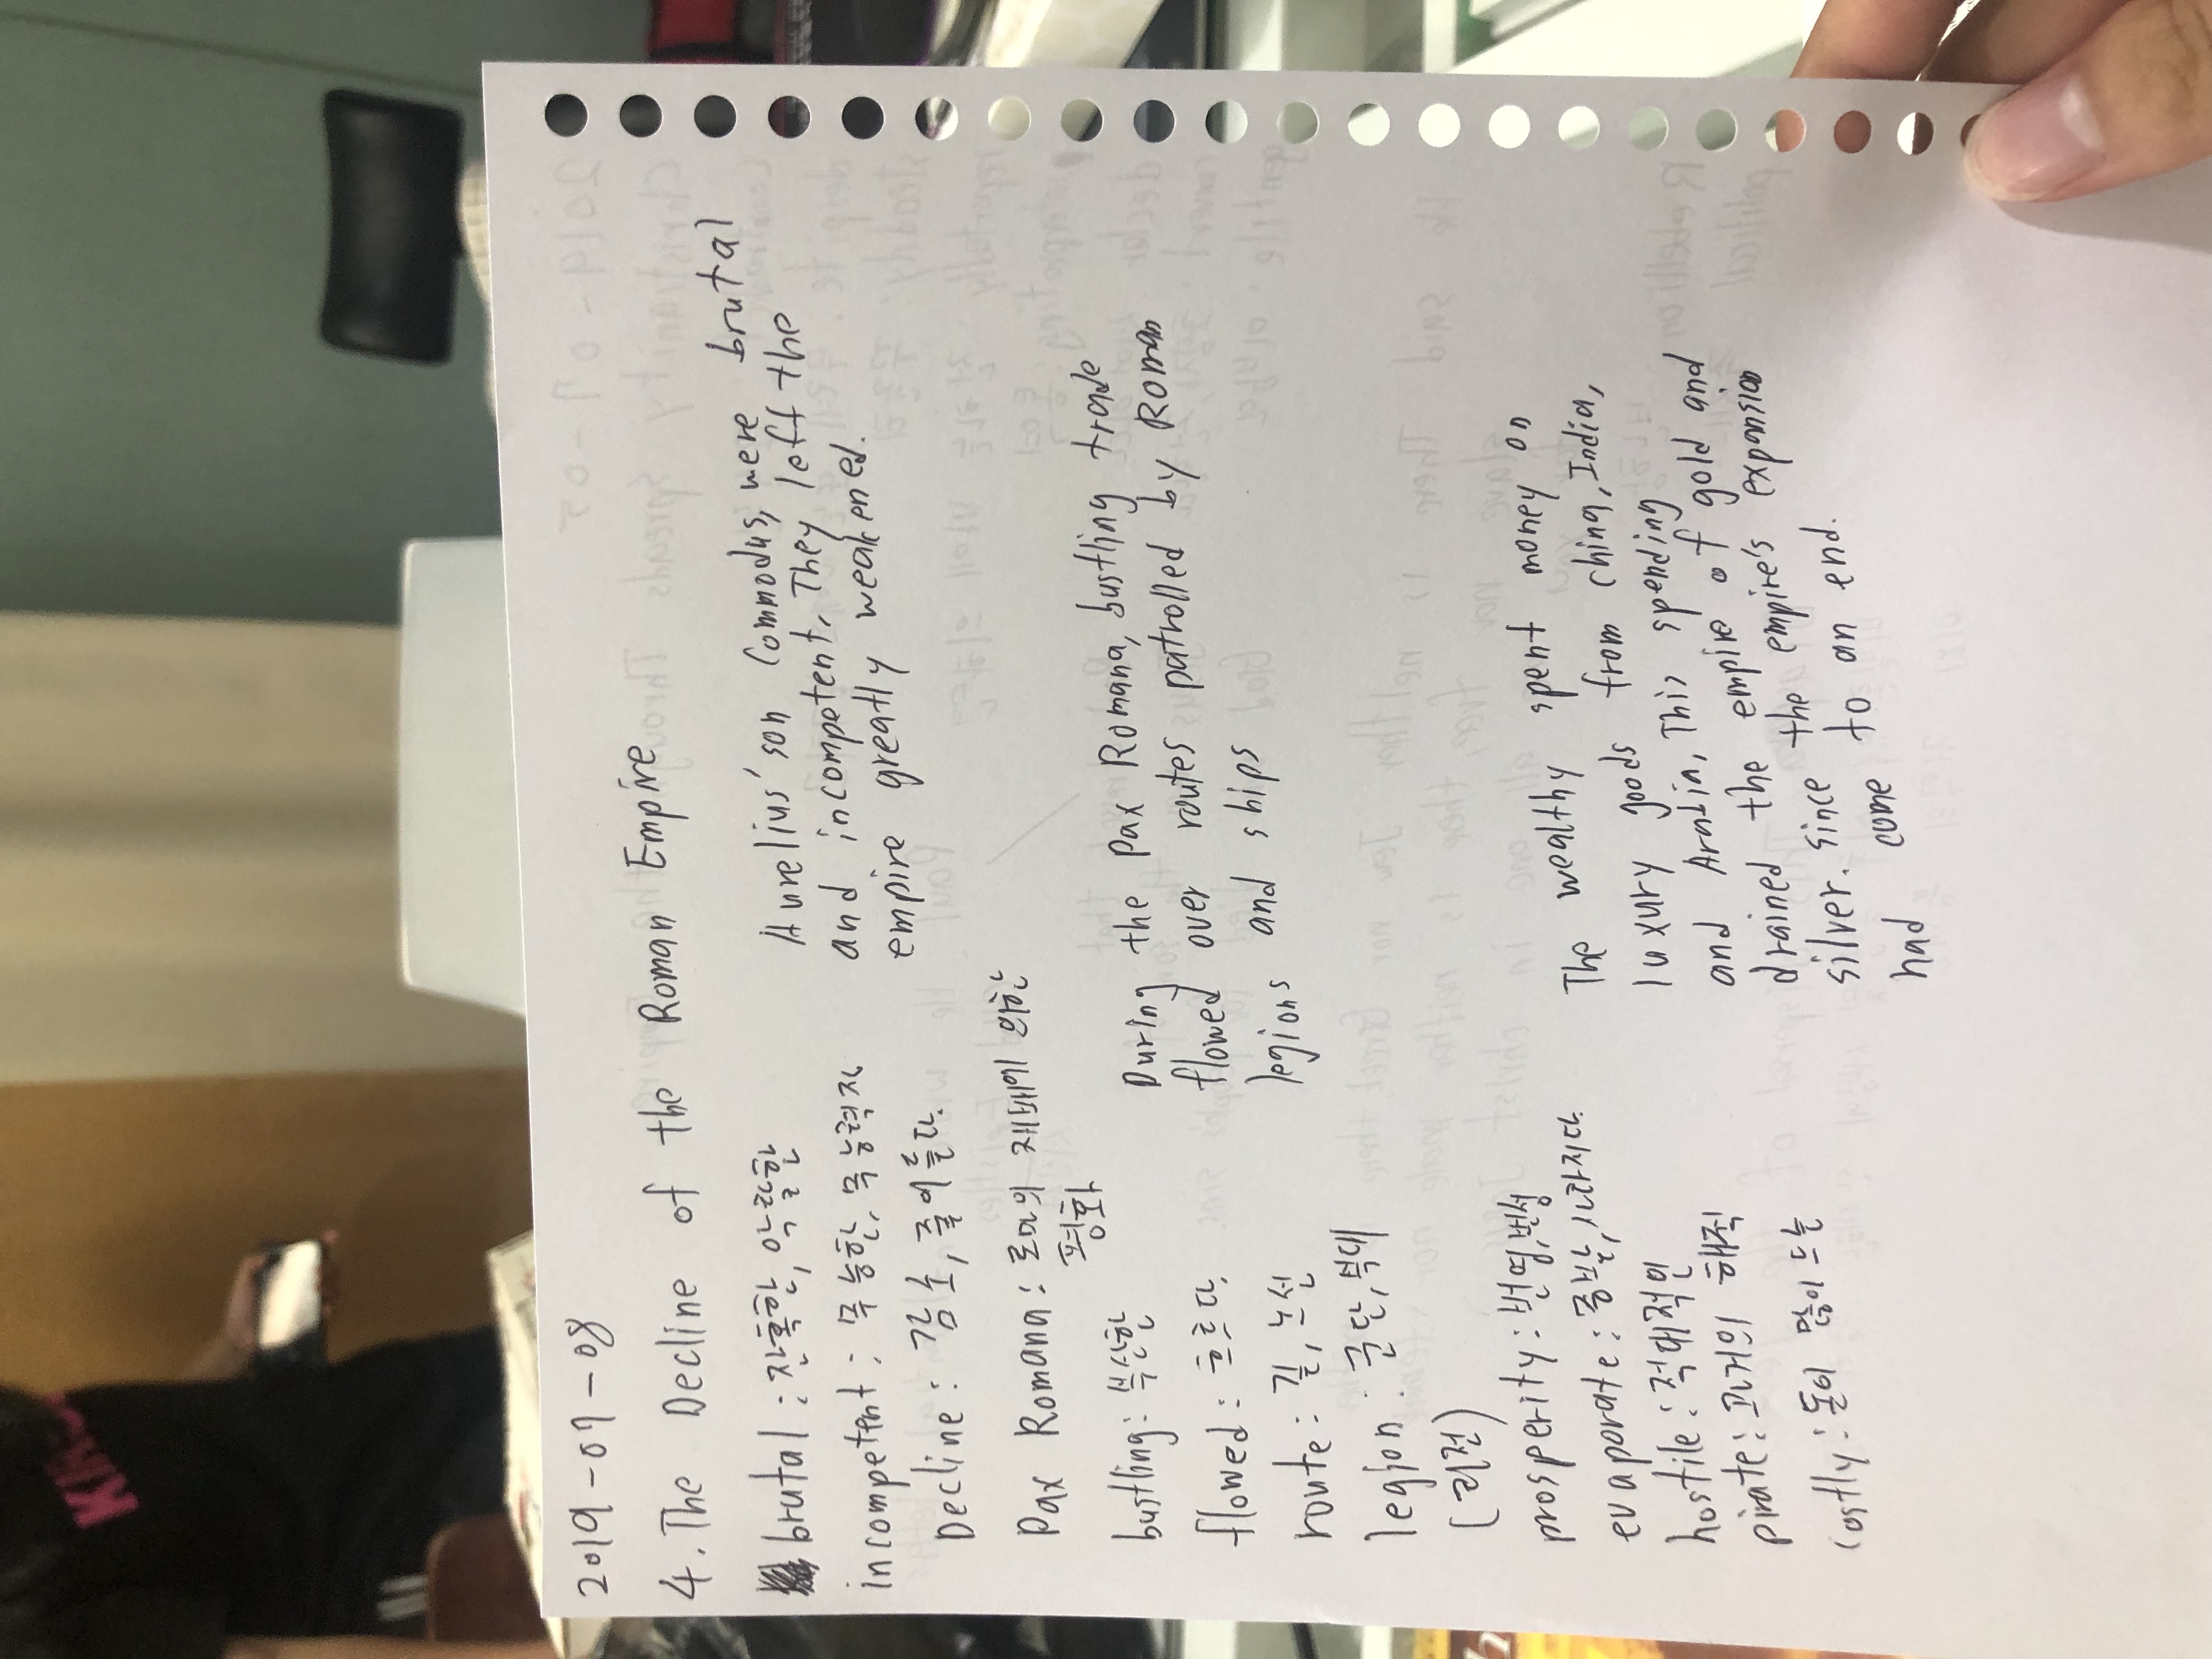 2019-07-08
4. The Decline of the Roman Empire
brutal : 잔혹한, 악랄한
incompetent : 무능한, 무능력자
Decline : 감소, 줄어들다.
Pax Romana : 로마의 지배에 의한
평화
bustling : 부산한
flowed : 흐르다.
route : 길, 노선
legion : 군단, 부대
(리전)
prosperity : 번영, 번성
evaporate : 증발, 사라지다
hostile : 적대적인
pirate : 과거의 해적
costly : 돈이 많이 드는
Aurelius' son Commodus, were brutal
and incompetent. They left the
empire greatly weakened.
During the Pax Romana, bustling trade
flowed over routes patrolled by Roman
legions and ships
The wealthy spent money on
luxury goods from China, India,
and Arabia, This spending
drained the empire of gold and
silver. since the empire's expansion
had come to an end.
KING